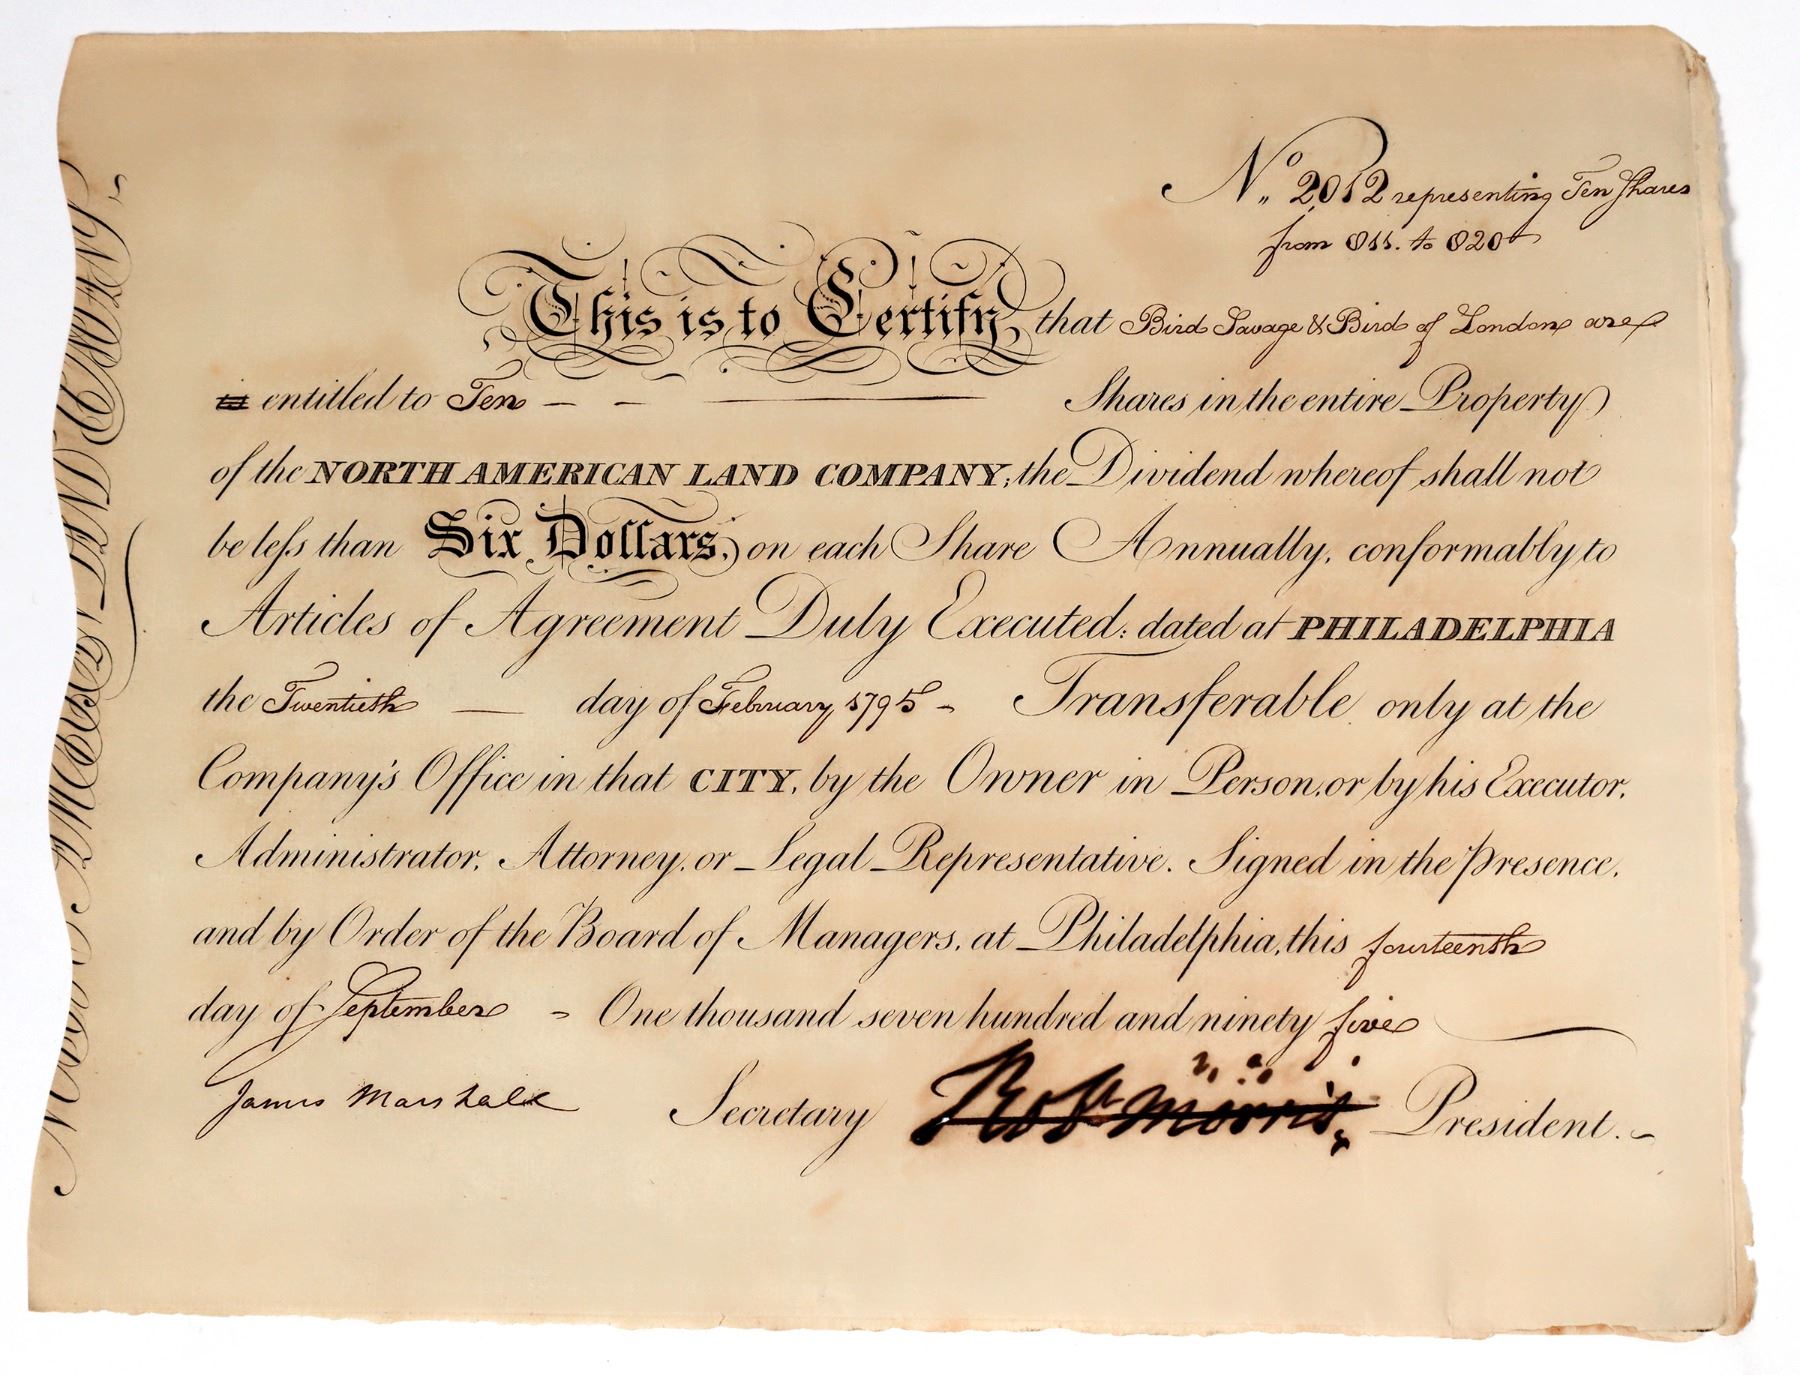 No. 2012 representing Ten Shares
from 011. to 020
This is to Certify, that Bird Savage & Bird of London are
is entitled to Ten — — —— Shares in the entire Property
of the NORTH AMERICAN LAND COMPANY; the Dividend whereof shall not
be leſs than Six Dollars, on each Share Annually, conformably to
Articles of Agreement Duly Executed: dated at PHILADELPHIA
the Twentieth — day of February 1795 - Transferable only at the
Company's Office in that CITY, by the Owner in Person, or by his Executor,
Administrator, Attorney, or Legal Representative. Signed in the Presence,
and by Order of the Board of Managers, at Philadelphia, this fourteenth
day of September - One thousand seven hundred and ninety five
James Marshall Secretary Robt Morris President.